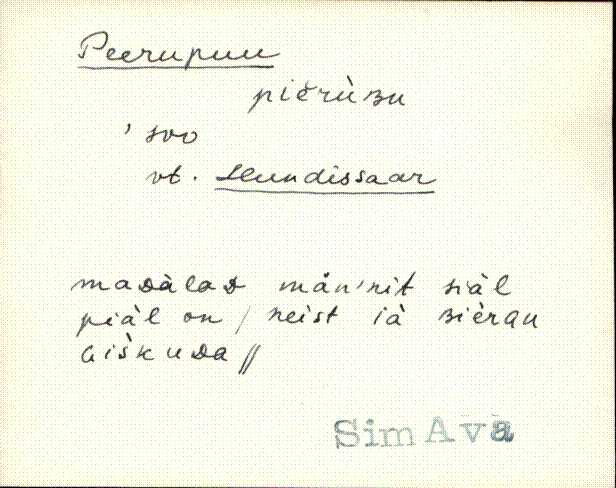 Peerupuu
pièrùʙu
, soo
vt. Hundissaar
maᴅàlaᴅ mån'nit siàl
piàl on / neist ià ʙièrau
aiškuᴅa //
Sim Ava